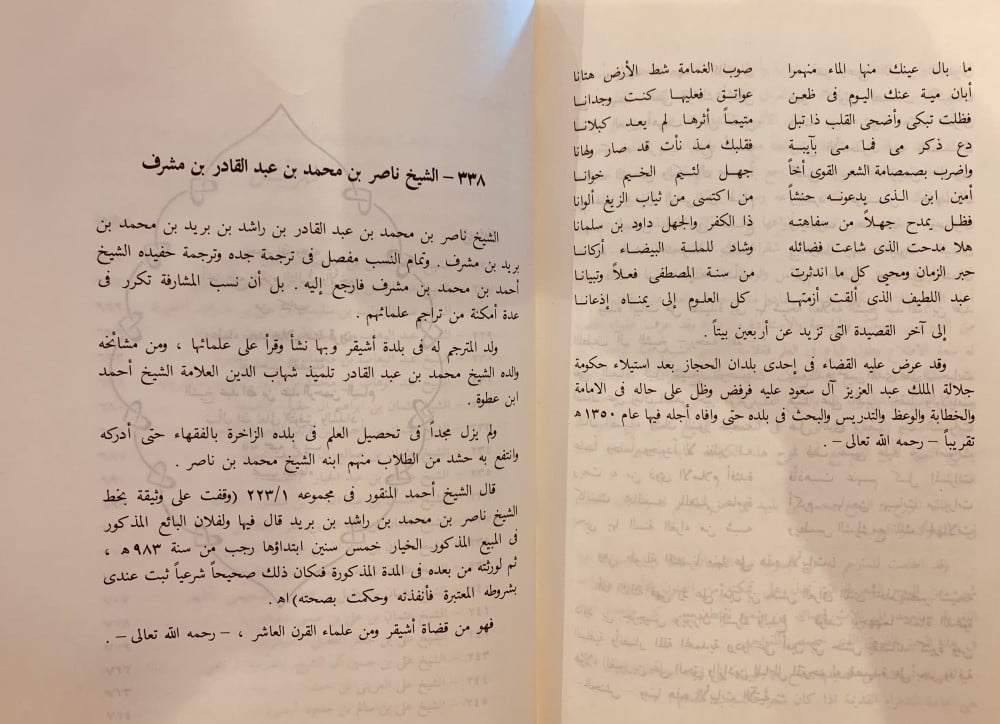 ما بال عينك منها الماء منهمرا صوب الغمامة شط الأرض هتانا
أبان مية عنك اليوم فى ظعن عواتق فعليها كنت وجدانا
فظلت تبكى وأضحى القلب ذا تبل متيماً أثرها لم يعد كبلانا
دع ذكر مى فما مى بآيبة فقلبك مذ نأت قد صار ولهانا
واضرب بصمصامة الشعر القوى أخاً جهل لئيم الخيم خوانا
أمين ابن الذى يدعونه حنشاً من اكتسى من ثياب الزيغ ألوانا
فظل يمدح جهلاً من سفاهته ذا الكفر والجهل داود بن سلمانا
هلا مدحت الذى شاعت فضائله وشاد للملة البيضاء أركانا
حبر الزمان ومحيى كل ما اندثرت من سنة المصطفى فعلاً وتبيانا
عبد اللطيف الذى ألقت أزمتها كل العلوم إلى يمناه إذعانا
إلى آخر القصيدة التى تزيد عن أربعين بيتاً .
وقد عرض عليه القضاء فى إحدى بلدان الحجاز بعد استيلاء حكومة
جلالة الملك عبد العزيز آل سعود عليه فرفض وظل على حاله فى الامامة
والخطابة والوعظ والتدريس والبحث فى بلده حتى وافاه أجله فيها عام ١٣٥٠ ه
تقريباً – رحمه الله تعالى – .
٣٣٨ – الشيخ ناصر بن محمد بن عبد القادر بن مشرف
الشيخ ناصر بن محمد بن عبد القادر بن راشد بن بريد بن محمد بن
بريد بن مشرف . وتمام النسب مفصل فى ترجمة جده وترجمة حفيده الشيخ
أحمد بن محمد بن مشرف فارجع إليه . بل أن نسب المشارفة تكرر فى
عدة أمكنة من تراجم علمائهم .
ولد المترجم له فى بلدة أشيقر وبها نشأ وقرأ على علمائها ، ومن مشائخه
والده الشيخ محمد بن عبد القادر تلميذ شهاب الدين العلامة الشيخ أحمد
ابن عطوة .
ولم يزل مجداً فى تحصيل العلم فى بلده الزاخرة بالفقهاء حتى أدركه
وانتفع به حشد من الطلاب منهم ابنه الشيخ محمد بن ناصر .
قال الشيخ أحمد المنقور فى مجموعه ٢٢٣/١ (وقفت على وثيقة بخط
الشيخ ناصر بن محمد بن راشد بن بريد قال فيها ولفلان البائع المذكور
فى المبيع المذكور الخيار خمس سنين ابتداؤها رجب من سنة ٩٨٣ ه ،
ثم لورثته من بعده فى المدة المذكورة فكان ذلك صحيحاً شرعياً ثبت عندى
بشروطه المعتبرة فأنفذته وحكمت بصحته) اه .
فهو من قضاة أشيقر ومن علماء القرن العاشر ، – رحمه الله تعالى – .